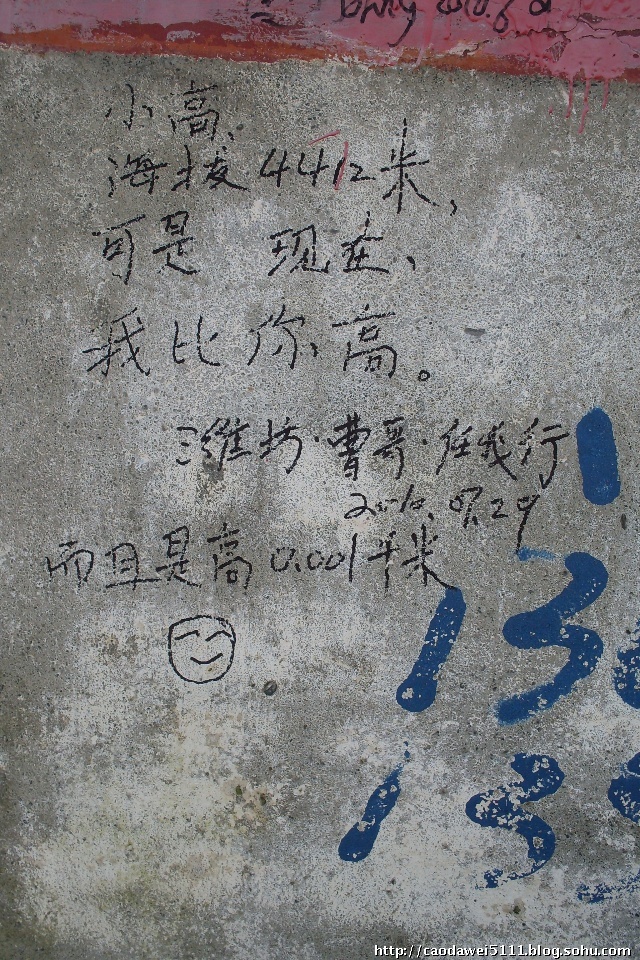 小高、
海拔4412米，
可是 现在、
我比你高。
潍坊·曹哥·任我行
2010.07.29
而且是高0.001千米
1
13
13
http://caodawei5111.blog.sohu.com